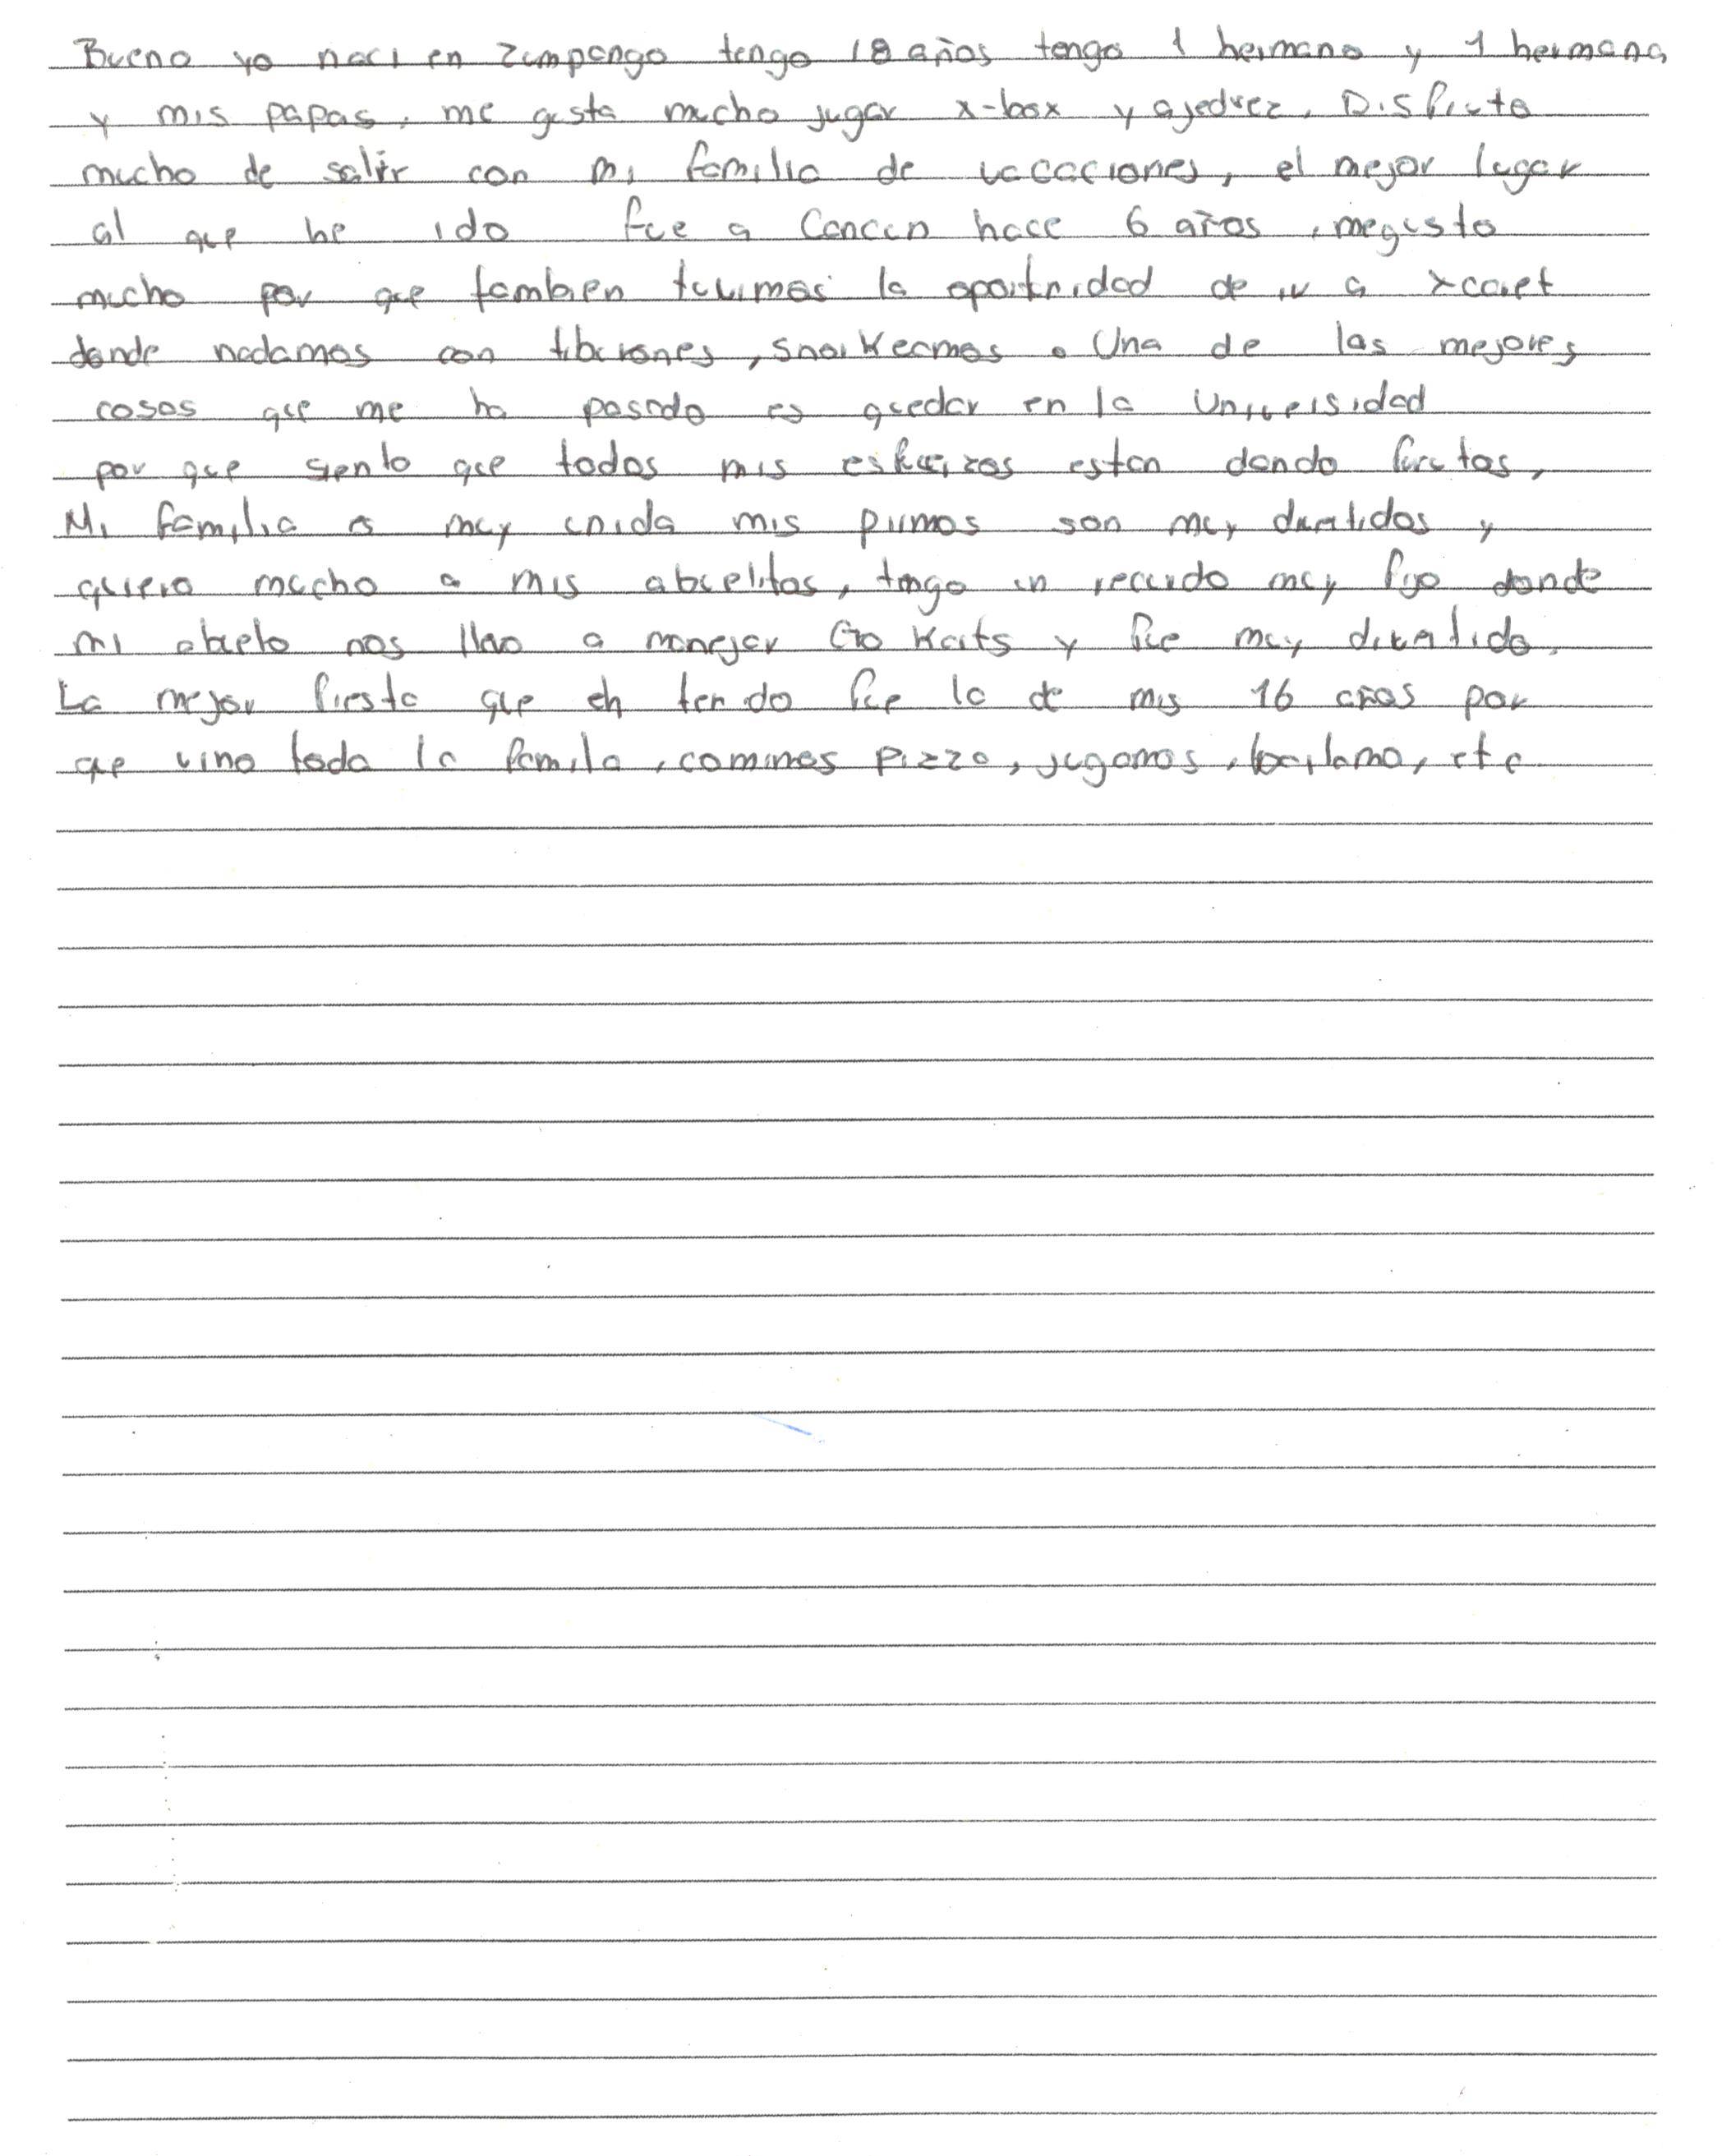 Bueno yo naci en Zumpango tengo 18 años tengo 1 hermano y 1 hermana
y mis papas, me gusta mucho jugar x-box y ajedrez, Disfruto
mucho de salir con mi familia de vacaciones, el mejor lugar
al que he ido fue a Cancun hace 6 años, me gusto
mucho por que tambien tuvimos la oportunidad de ir a xcaret
donde nadamos con tiburones, snorkeamos. Una de las mejores
cosas que me ha pasado es quedar en la Universidad
por que siento que todos mis esfuerzos estan dando frutos,
Mi familia es muy unida mis primos son muy divertidos y
quiero mucho a mis abuelitos, tengo un recuerdo muy fijo donde
mi abuelo nos llevo a manejar Go Karts y fue muy divertido.
La mejor fiesta que eh tenido fue la de mis 16 años por
que vino toda la familia, comimos pizza, jugamos, bailamo, etc